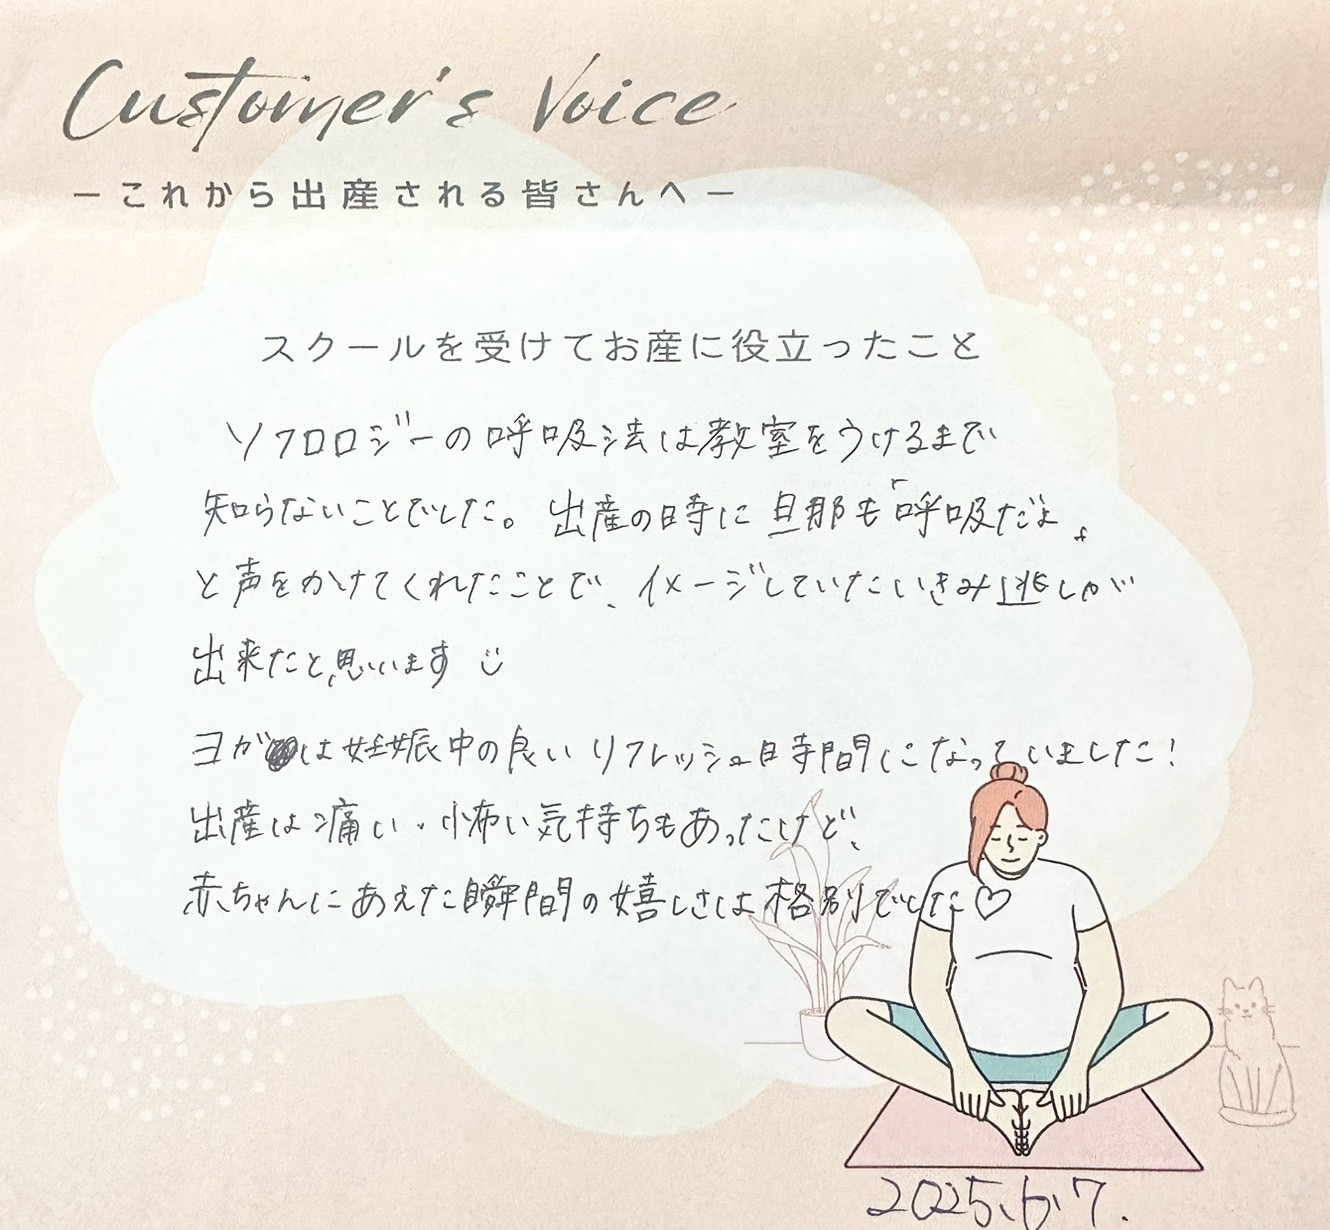 Customer's Voice
ーこれから出産される皆さんへー
スクールを受けてお産に役立ったこと
ソフロロジーの呼吸法は教室をうけるまで
知らないことでした。出産の時に旦那も「呼吸だよ」
と声をかけてくれたことで、イメージしていたいきみ逃しが
出来たと思います
ヨガは妊娠中の良いリフレッシュ時間になっていました!
出産は痛い・怖い気持ちもあったけど、
赤ちゃんにあえた瞬間の嬉しさは格別でした♡
2025.6.7.